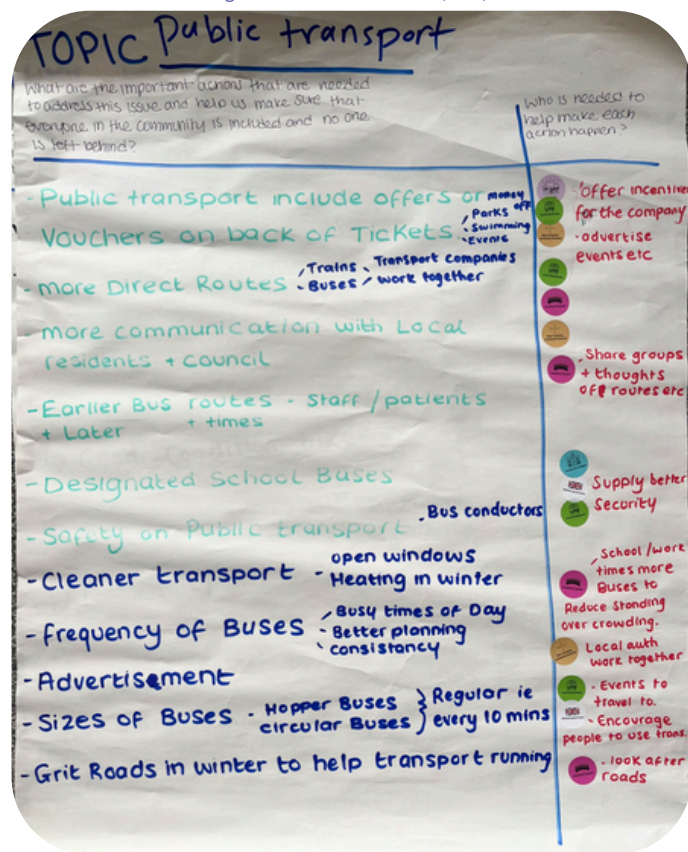 TOPIC Public transport
What are the important actions that are needed
to address this issue and help us make sure that
everyone in the community is included and no one
is left behind?
Who is needed to
help make each
action happen?
- Public transport include offers or money off
Vouchers on back of Tickets
, Parks
- Swimming
- Events
- more Direct Routes
- Trains
- Buses
Transport companies
work together
- more communication with Local
residents + council
- Earlier Bus routes - Staff / patients
+ Later + times
- Designated School Buses
- Safety on Public transport
. Bus conductors
- Cleaner transport
- open windows
Heating in winter
- Frequency of Buses
- Busy times of Day
- Better planning
- consistancy
- Advertisement
- Sizes of Buses
- Hopper Buses
circular Buses
} Regular ie
every 10 mins
- Grit Roads in winter to help transport running
. offer incentives
for the company
. advertise
events etc
. Share groups
+ thoughts
off routes etc
Supply better
Security
, School / work
times more
Buses to
Reduce standing
over crowding.
Local auth
work together
- Events to
travel to.
- Encourage
people to use trans.
- look after
roads